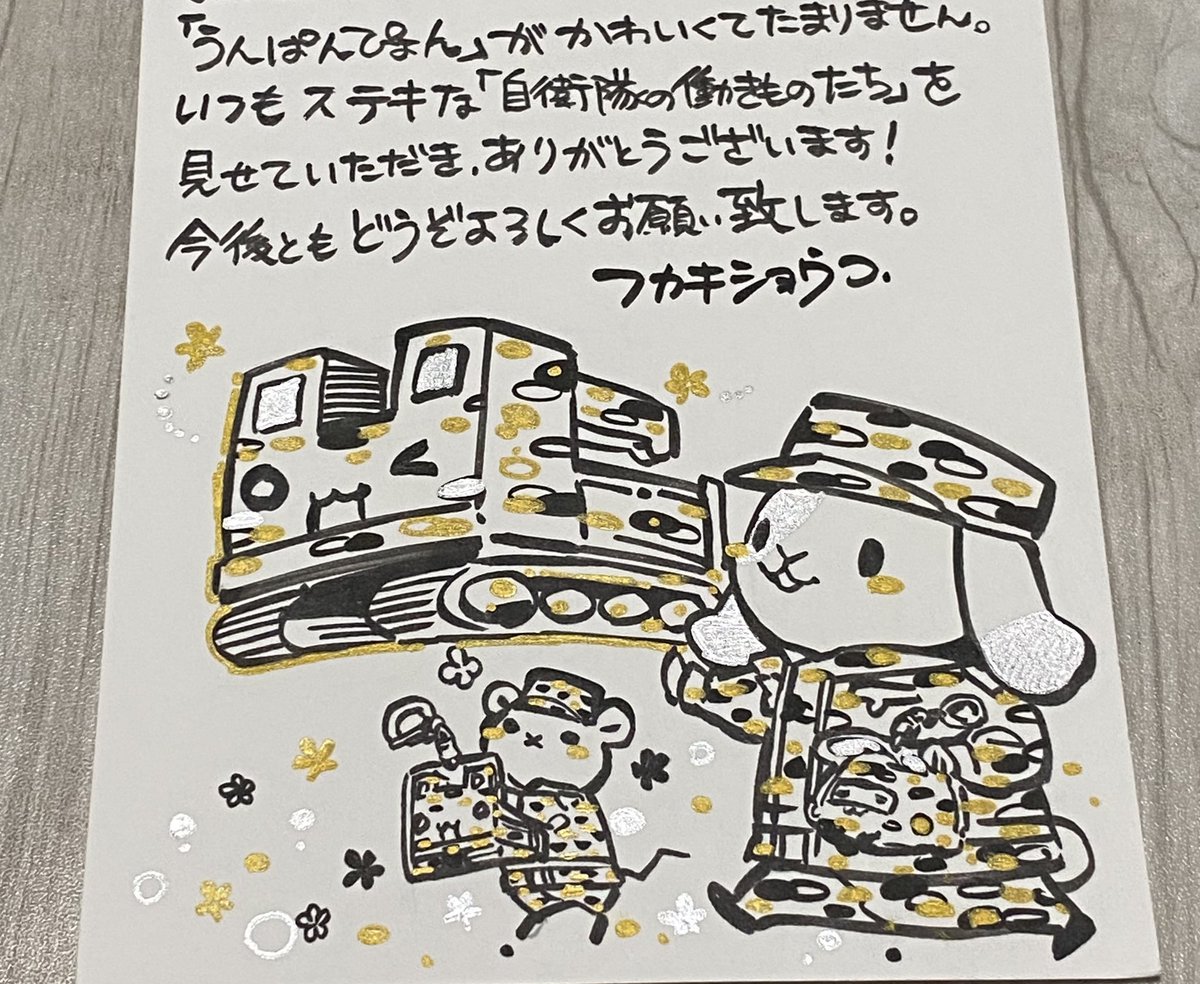 「うんぱんぴょん」がかわいくてたまりません。
いつもステキな「自衛隊の働きものたち」を
見せていただき、ありがとうございます!
今後ともどうぞよろしくお願い致します。
フカキショウコ.